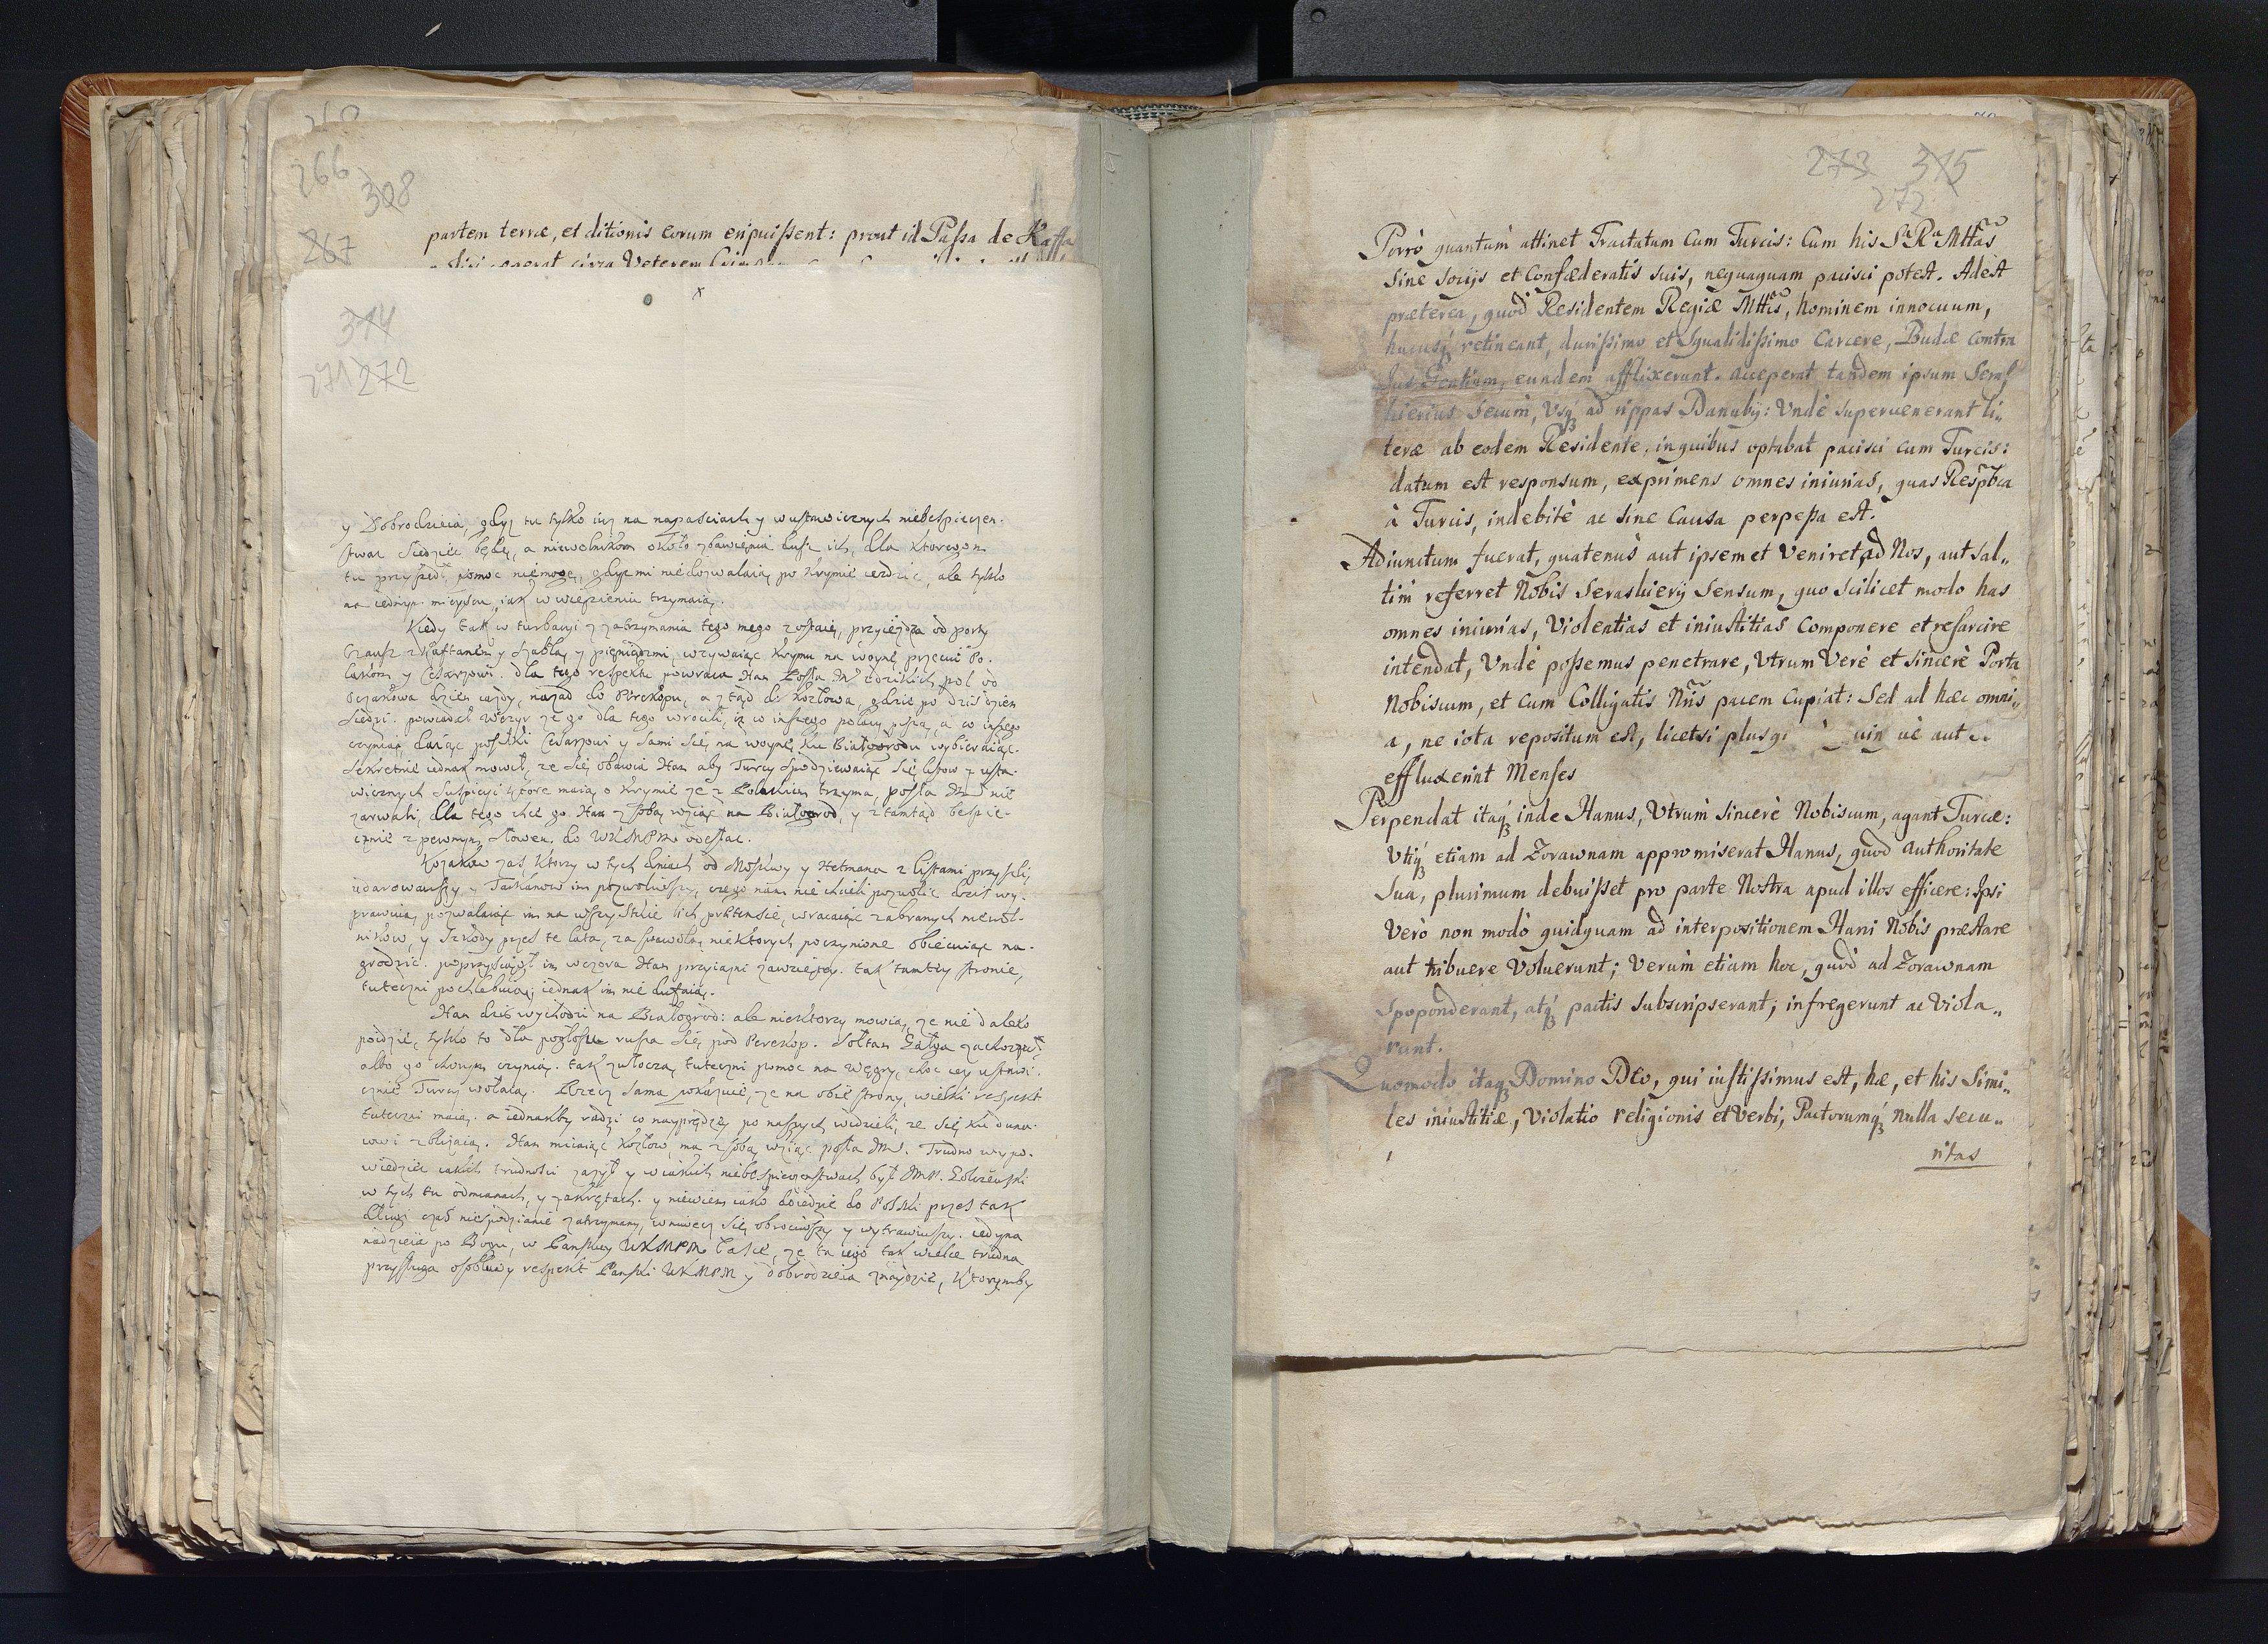 266
308
267
partem terræ, et ditionis eorum eripuissent: prout id Passa de Kaffa
x
314
271 272
y Dobrodzieia, gdyz tu tylko iuz na napasciach y wustawicznych niebespieczen-
stwac siedziec będę, a niewolnikom około zbawięnia dusz ich, dla ktoregom
tu przyszedł, pomoc niemogę, gdyz mi niedozwalaią po Krymie iezdzic, ale tylko
na iednym mieyscu iak w więzieniu trzymaią.
Kiedy tak w turbacyi z zatrzymania tego mego zostaię, przyiezdza od porty
Czausz z Kaftanem y szablą y pięniądzmi, wzywaiąc Krymu na woynę przeciw Po-
lakom y Cesarzowi. dla tego respektu powraca Han Posła JM z dzikich pol od
Oczakowa dzien iazdy, nazad do Perekopu, a ztąd do Kozłowa, gdzie po dzis dzien
siedzi. powiadał Wezyr ze go dla tego wrocili, iz co inszego polacy piszą, a co inszego
czynią, daiąc posiłki Cesarzowi y sami się na woynę ku Białogrodu wybieraiąc.
Sekretnie iednak mowił, ze się obawia Han aby Turcy spodziewaiąc się listow z usta-
wicznych suspicyi ktore maią o Krymie ze z Polakiem trzyma, posła JM nie
zarwali, dla tego chce go Han z sobą wziąc na Białogrod, y ztamtąd bespie-
cznie z pewnym słowem do WKMPM odesłac.
Kozakow zas, ktorzy w tych dniach od Moskwy y Hetmana z listami przyszli,
udarowawszy y Tarkanow im pozwoliwszy, czego nam nie chcieli pozwolic dzis wy-
prawuią, pozwalaiąc im na wszystkie ich prætensie, wracaiąc zabranych niewol-
nikow, y szkody przes te lata, za swawolą niektorych poczynione obiecuiąc na-
grodzic. poprzysiągł im wczora Han przyiazni zawziętey. tak tamtey stronie,
tuteczni pochlebuią; iednak im nie dufaią.
Han dzis wychodzi na Białogrod: ale niektorzy mowią, ze nie daleko
poidzie, tylko to dla pogłosu rusza się pod Perekop. Sołtan Gałga zachorzał
albo go chorym czynią. tak zwłoczą tuteczni pomoc na Węgry, choc ięy ustawi-
cznie Turcy wołaią. Rzecz sama pokazuie, ze na obie strony, wielki respekt
tuteczni maią. a iednakby radzi co nayprędzey po naszych widzieli, ze się ku Duna-
iowi zblizaią. Han miiaiąc Kozłow, ma z sobą wziąc posła JM. Trudno wypo-
wiedziec iakich trudnosci zazył y w iakich niebespieczenstwach był JMP. Golczewski
w tych tu odmianach, y zakrętach. y niewiem iako doiedzie do Polski przes tak
długi czas niespodzianie zatrzymany, wniwecz się obrociwszy y wytrawiwszy. iedyna
nadzieia po Bogu, w Panskiey WKMPM łasce, ze ta iego tak wielce trudna
przysługa osobliwy respekt Panski WKMPM y dobrodzieia znaydzie, Ktorymby
273 315
272
Porrò quantum attinet Tractatum Cum Turcis: Cum his Sa Ra Mttas
sine socijs et Confæderatis suis, nequaquam pacisci potest. Adest
præterea, quod Residentem Regiæ Mttis, hominem innocuum,
hucusq retineant, durissimo et squalidissimo Carcere, Budæ contra
Jus Gentium, eundem afflixerant. acceperat tandem ipsum Seras
kierius secum, Vsq ad rippas Danubij: Vndè superuenerant li„
teræ ab eodem Residente, in quibus optabat pacisci cum Turcis:
datum est responsum, exprimens omnes iniurias, quas Respbca
à Turcis, indebitè ac sine Causa perpessa est.
Adiunctum fuerat, quatenus aut ipsemet Veniret ad Nos, aut sal„
tim referret Nobis Seraskierij Sensum, quo scilicet modo has
omnes iniurias, Violentias et iniustitias Componere et resarcire
intendat, Vndè possemus penetrare, Vtrum Verè et Sincerè Porta
Nobiscum, et cum Colligatis Nris pacem Cupiat: Sed ad hæc omni„
a, ne iota repositum est, licetsi plus
effluxerint Menses
Perpendat itaq inde Hanus, Vtrum sincerè Nobiscum, agant Turcæ:
Vtiq etiam ad Zorawnam appromiserat Hanus, quod authoritate
Sua, plurimum debuisset pro parte Nostra apud illos efficere: Ipsi
Verò non modò quidquam ad interpositionem Hani Nobis præstare
aut tribuere Voluerunt; Verùm etiam hoc, quod ad Zorawnam
spoponderant, atq pactis subscripserant; infregerunt ac Viola„
runt.
Quomodo itaq Domino Deo, qui iustissimus est, hæ, et his Simi„
les iniustitiæ, Violatio religionis et Verbi, Pactorumq nulla secu„
ritas